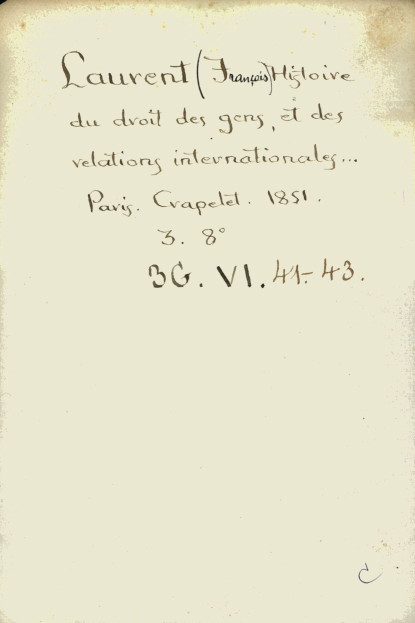 Laurent (François) Histoire
du droit des gens, et des
relations internationales...
Paris. Crapelet. 1851.
3. 8°
3G. VI. 41-43.
C